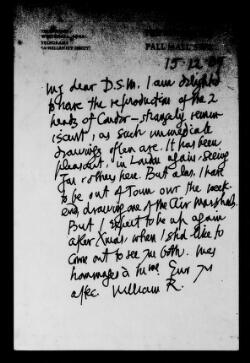 PALL MALL
15.12.
My dear D.S.M. I am delighted
to have the reproduction of the 2
heads of Conder – strangely remin-
iscent, as such immediate
drawings often are. It has been
pleasant, in London again, seeing
you & others here. But alas, I have
to be out of Town over the week-
end, drawing one of the Air Marshals.
But I expect to be up again
after Xmas, when I shd like to
come out to see you both. Mes
hommages à
affec. William R.